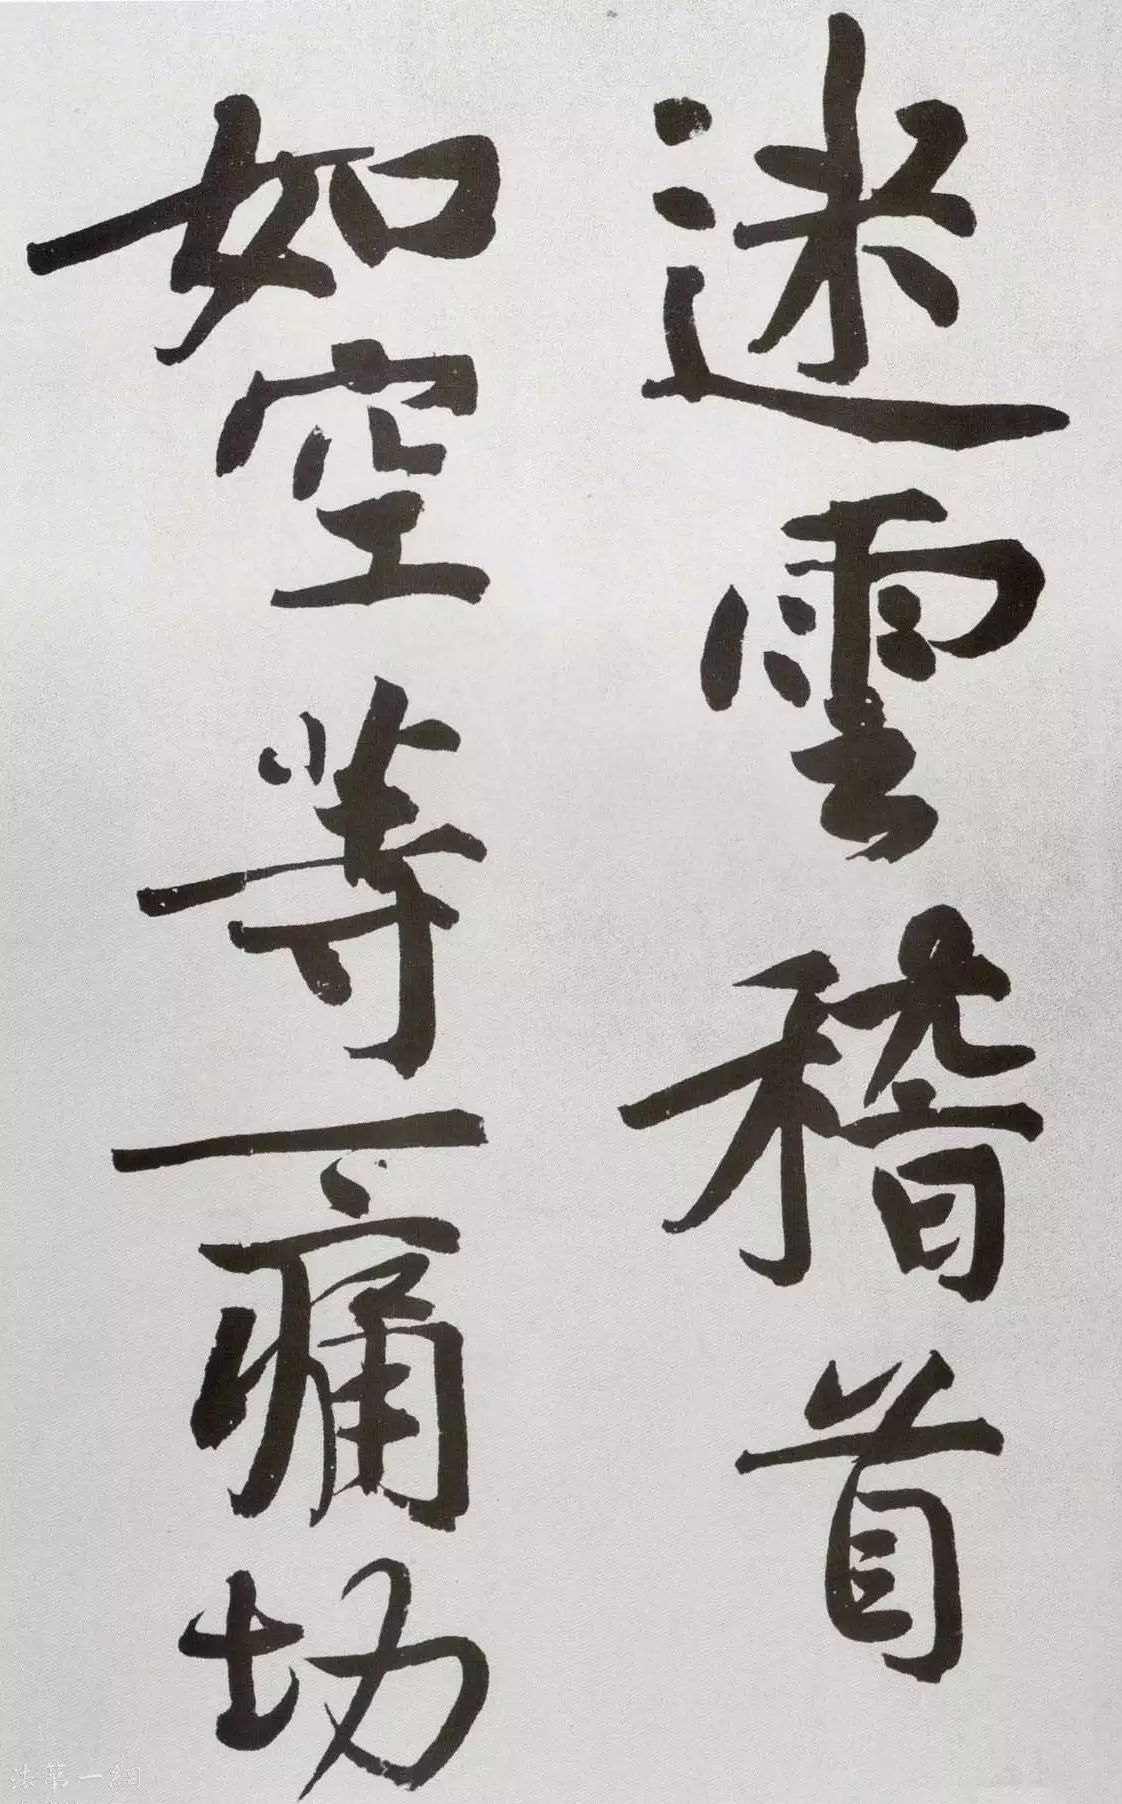 迷雲稽首
如空等一痛切
法第一網